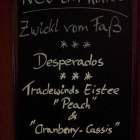 Zwickl vom Faß
***
Desperados
***
Tradewinds Eistee
"Peach"
&
"Cranberry-Cassis"